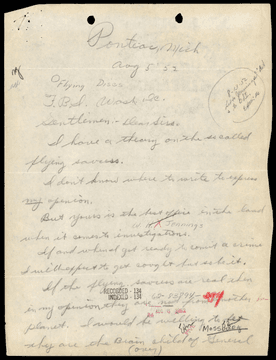 Pontiac, Mich
Aug 5 '52
Flying Discs
F.B.I. Wash. D.C.
Gentlemen - Dear Sirs:-
I have a theory on the so called
flying saucers.
I don't know where to write to express
my opinion.
But yours is the best office in the land
when it comes to investigations.
If and when I get ready to commit a crime
I will expect to get caught has to be it.
If the flying saucers are real then
in my opinion they are not from another
planet. I would be willing to
they are the Brain Child of General
(over)
RECORDED - 134
INDEXED - 134